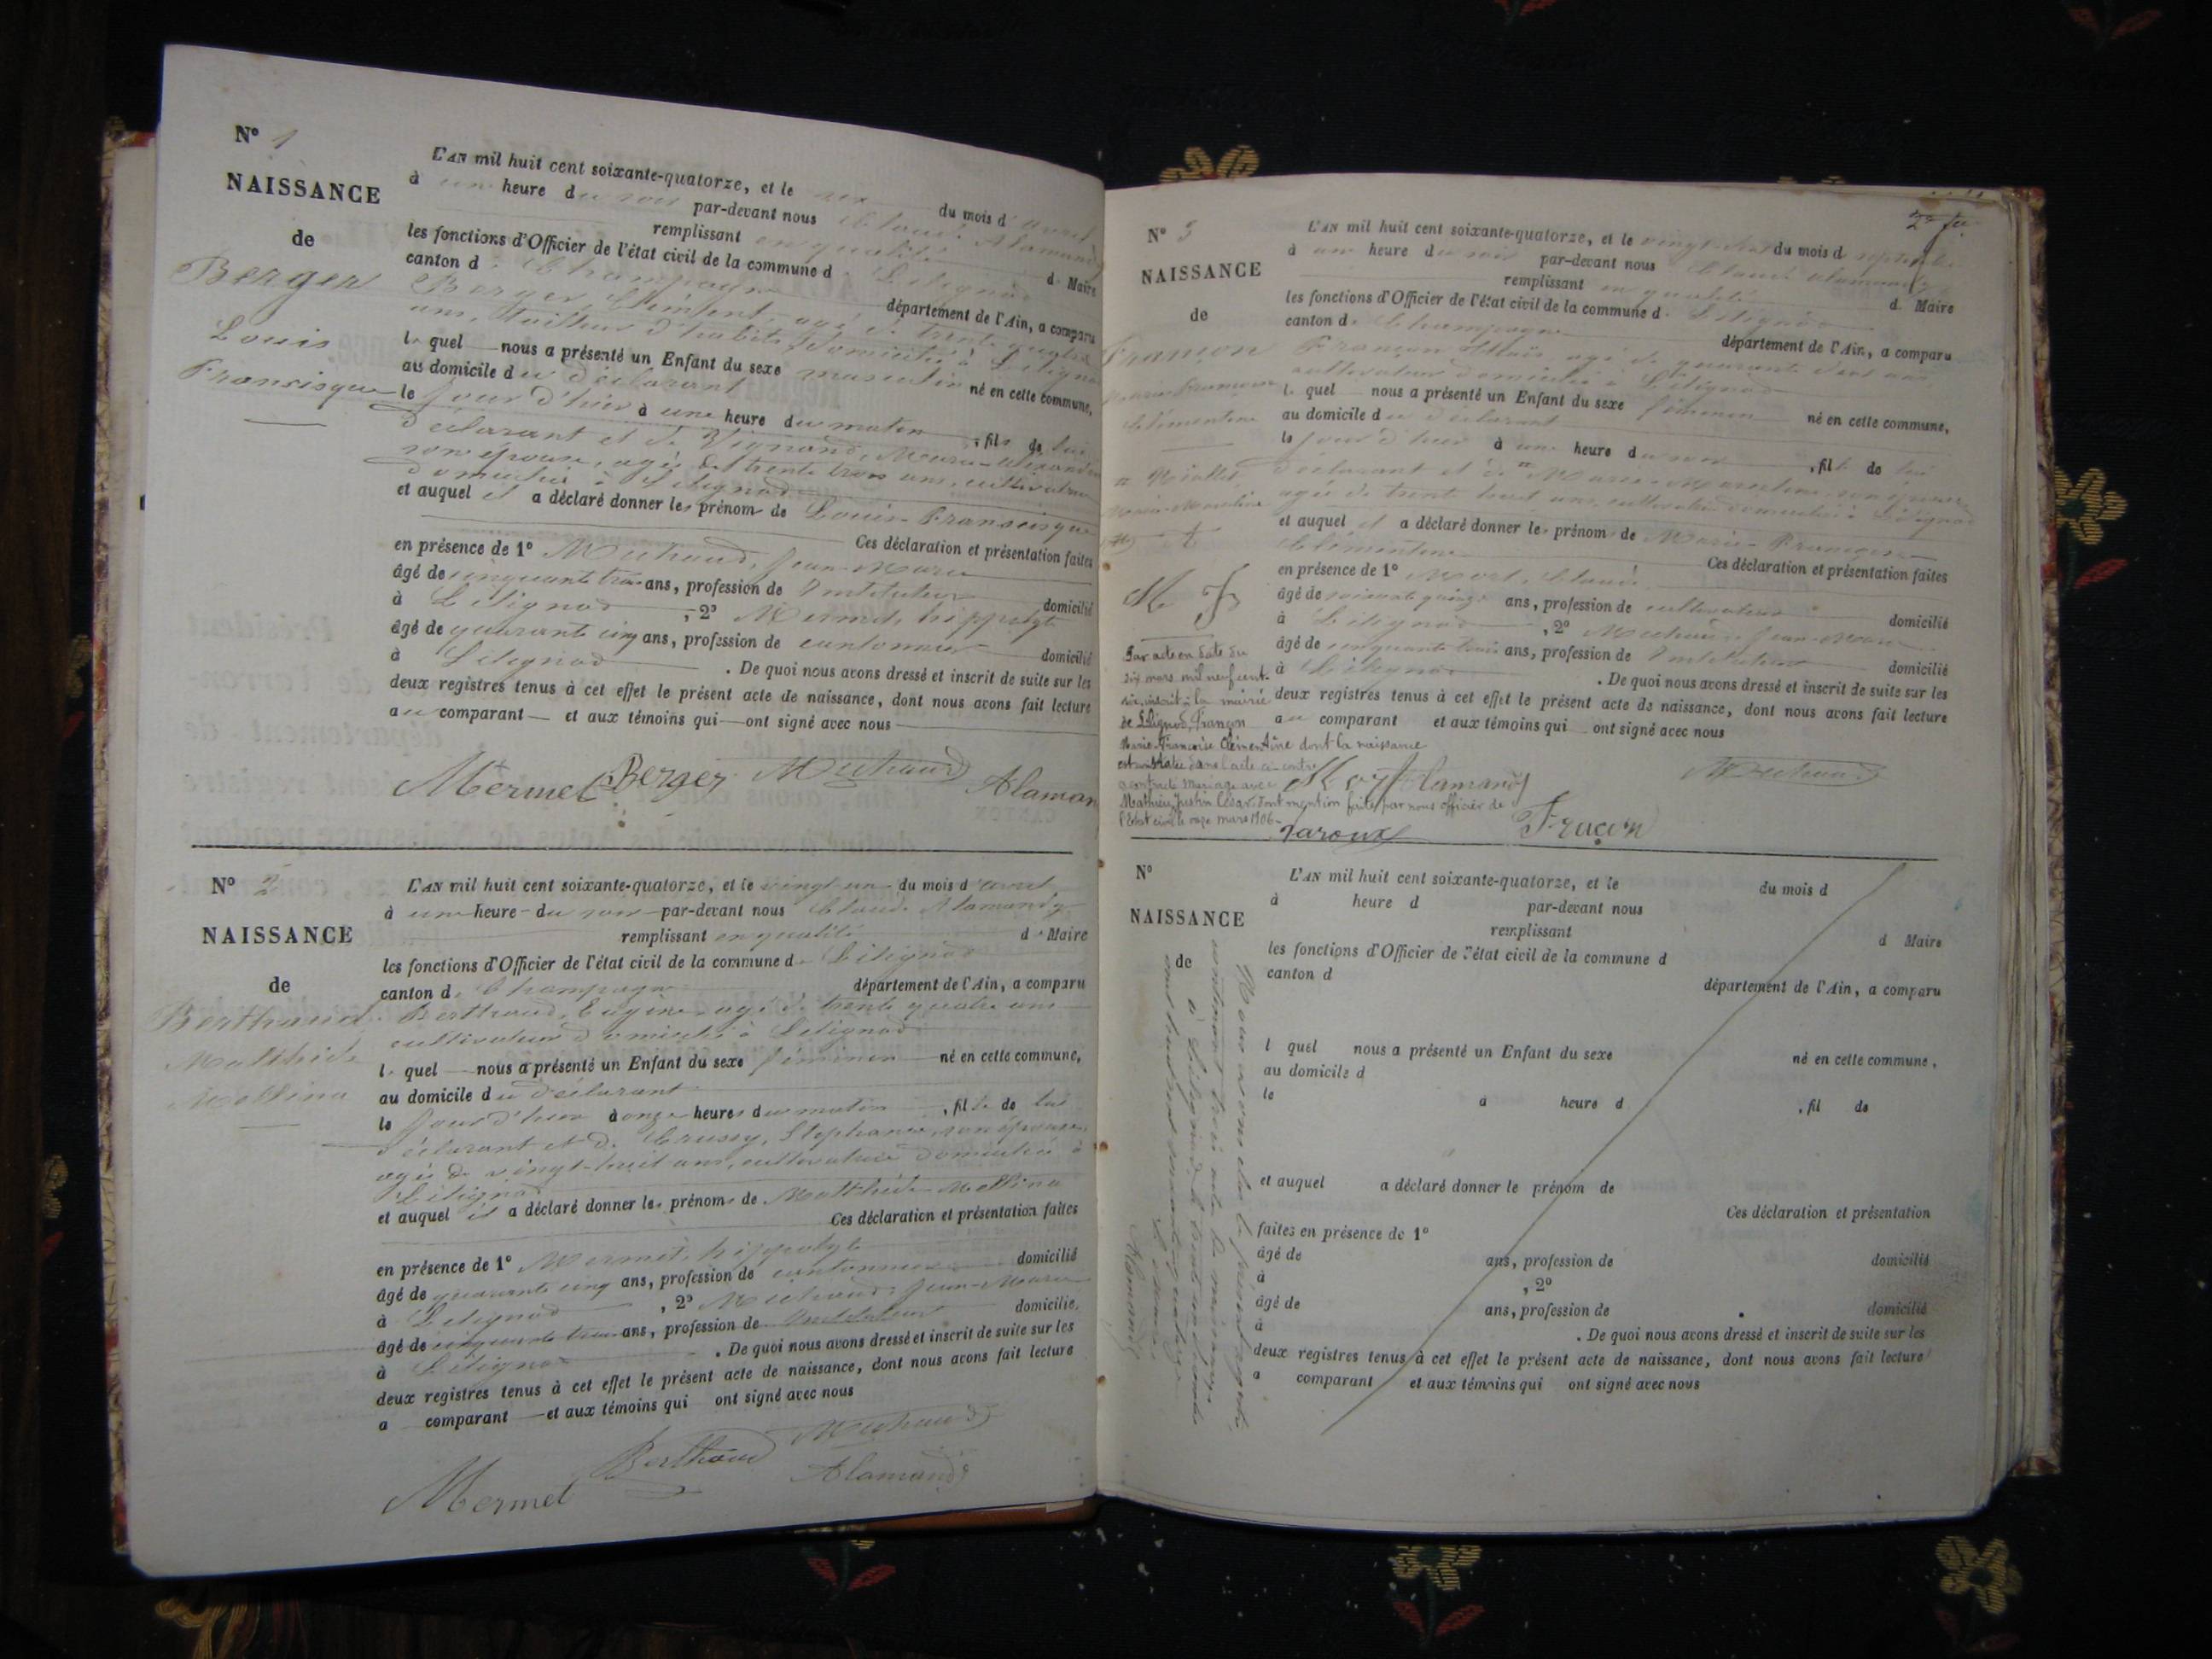 N° 1
NAISSANCE
de
Berger
Louis
Fransisque
L'AN mil huit cent soixante-quatorze, et le six du mois d'avril
à une heure du soir par-devant nous Claude Alamandy
remplissant en qualité de Maire
les fonctions d'Officier de l'état civil de la commune d Lilignod
canton de Champagne département de l'Ain, a comparu
Berger, Clément, agé de trente quatre
ans, tailleur d'habits, domicilié à Lilignod
le quel nous a présenté un Enfant du sexe masculin né en cette commune,
au domicile du déclarant
le jour d'hier à une heure du matin, fils de lui
déclarant et de Marie
son épouse, agée de trente trois ans, cultivatrice
domiciliée à Lilignod
et auquel il a déclaré donner les prénoms de Louis Fransisque
Ces déclaration et présentation faites
en présence de 1° Michaud, Jean-Marie
âgé de cinquante trois ans, profession de Instituteur domicilié
à Lilignod, 2° Mermet, hippolyte
âgé de quarante cinq ans, profession de cantonnier domicilié
à Lilignod. De quoi nous avons dressé et inscrit de suite sur les
deux registres tenus à cet effet le présent acte de naissance, dont nous avons fait lecture
au comparant et aux témoins qui ont signé avec nous
Mermet Berger Michaud Alaman
N° 2
NAISSANCE
de
Berthaud
Mathilde
Mellina
L'AN mil huit cent soixante-quatorze, et le vingt un du mois d'avril
à une heure du soir par-devant nous Claude Alamandy
remplissant en qualité de Maire
les fonctions d'Officier de l'état civil de la commune de Lilignod
canton de Champagne département de l'Ain, a comparu
Berthaud, Eugène, agé de trente quatre ans
cultivateur domicilié à Lilignod
le quel nous a présenté un Enfant du sexe féminin né en cette commune,
au domicile du déclarant
le jour d'hier à onze heures du matin, fille de lui
déclarant et de Crussy, Stephanie, son épouse,
agée de vingt-huit ans, cultivatrice domiciliée à
Lilignod
et auquel il a déclaré donner les prénoms de Mathilde Mellina
Ces déclaration et présentation faites
en présence de 1° Mermet, hippolyte
âgé de quarante cinq ans, profession de cantonnier domicilié
à Lilignod, 2° Michaud, Jean-Marie
âgé de cinquante trois ans, profession de Instituteur domicilié
à Lilignod. De quoi nous avons dressé et inscrit de suite sur les
deux registres tenus à cet effet le présent acte de naissance, dont nous avons fait lecture
a comparant et aux témoins qui ont signé avec nous
Mermet Berthaud Michaud
Alamandy
N° 3
NAISSANCE
de
Françon
Marie Françoise
Clémentine
Marie-Marceline
L'AN mil huit cent soixante-quatorze, et le du mois d septembre
à une heure du soir par-devant nous Claude Alamandy
remplissant en qualité de Maire
les fonctions d'Officier de l'état civil de la commune de Lilignod
canton de Champagne département de l'Ain, a comparu
Françon agé de quarante deux ans
cultivateur domicilié à Lilignod
le quel nous a présenté un Enfant du sexe féminin né en cette commune,
au domicile du déclarant
le jour d'hier à une heure du soir, fille de lui
déclarant et de Marie-Marceline son épouse
agée de trente huit ans, cultivatrice domiciliée à Lilignod
et auquel il a déclaré donner les prénoms de Marie-Françoise
Clémentine Ces déclaration et présentation faites
en présence de 1° Mort, Claude
âgé de soixante quinze ans, profession de cultivateur domicilié
à Lilignod, 2° Michaud, Jean-Marie
âgé de cinquante trois ans, profession de Instituteur domicilié
à Lilignod. De quoi nous avons dressé et inscrit de suite sur les
deux registres tenus à cet effet le présent acte de naissance, dont nous avons fait lecture
au comparant et aux témoins qui ont signé avec nous
Par acte en date du
six mars mil neuf cent
six, inscrit à la mairie
de Lilignod, Françon
Marie-Françoise Clémentine dont la naissance
est constatée dans l'acte ci-contre
a contracté mariage avec
Mathieu Justin César. Dont mention faite par nous officier de
l'Etat civil le onze mars 1906-
Alamandy Michaud
Françon
N°
NAISSANCE
de
L'AN mil huit cent soixante-quatorze, et le du mois d
à heure d par-devant nous
remplissant d Maire
les fonctions d'Officier de l'état civil de la commune d
canton d département de l'Ain, a comparu
l quel nous a présenté un Enfant du sexe né en cette commune,
au domicile d
le à heure d, fil de
et auquel a déclaré donner le prénom de
Ces déclaration et présentation
faites en présence de 1°
âgé de ans, profession de domicilié
à, 2°
âgé de ans, profession de domicilié
à. De quoi nous avons dressé et inscrit de suite sur les
deux registres tenus à cet effet le présent acte de naissance, dont nous avons fait lecture
a comparant et aux témoins qui ont signé avec nous
Nous avons clos le présent registre
contenant trois actes de naissance
à Lilignod le trente un décembre
mil huit cent soixante quatorze
Le maire
Alamandy